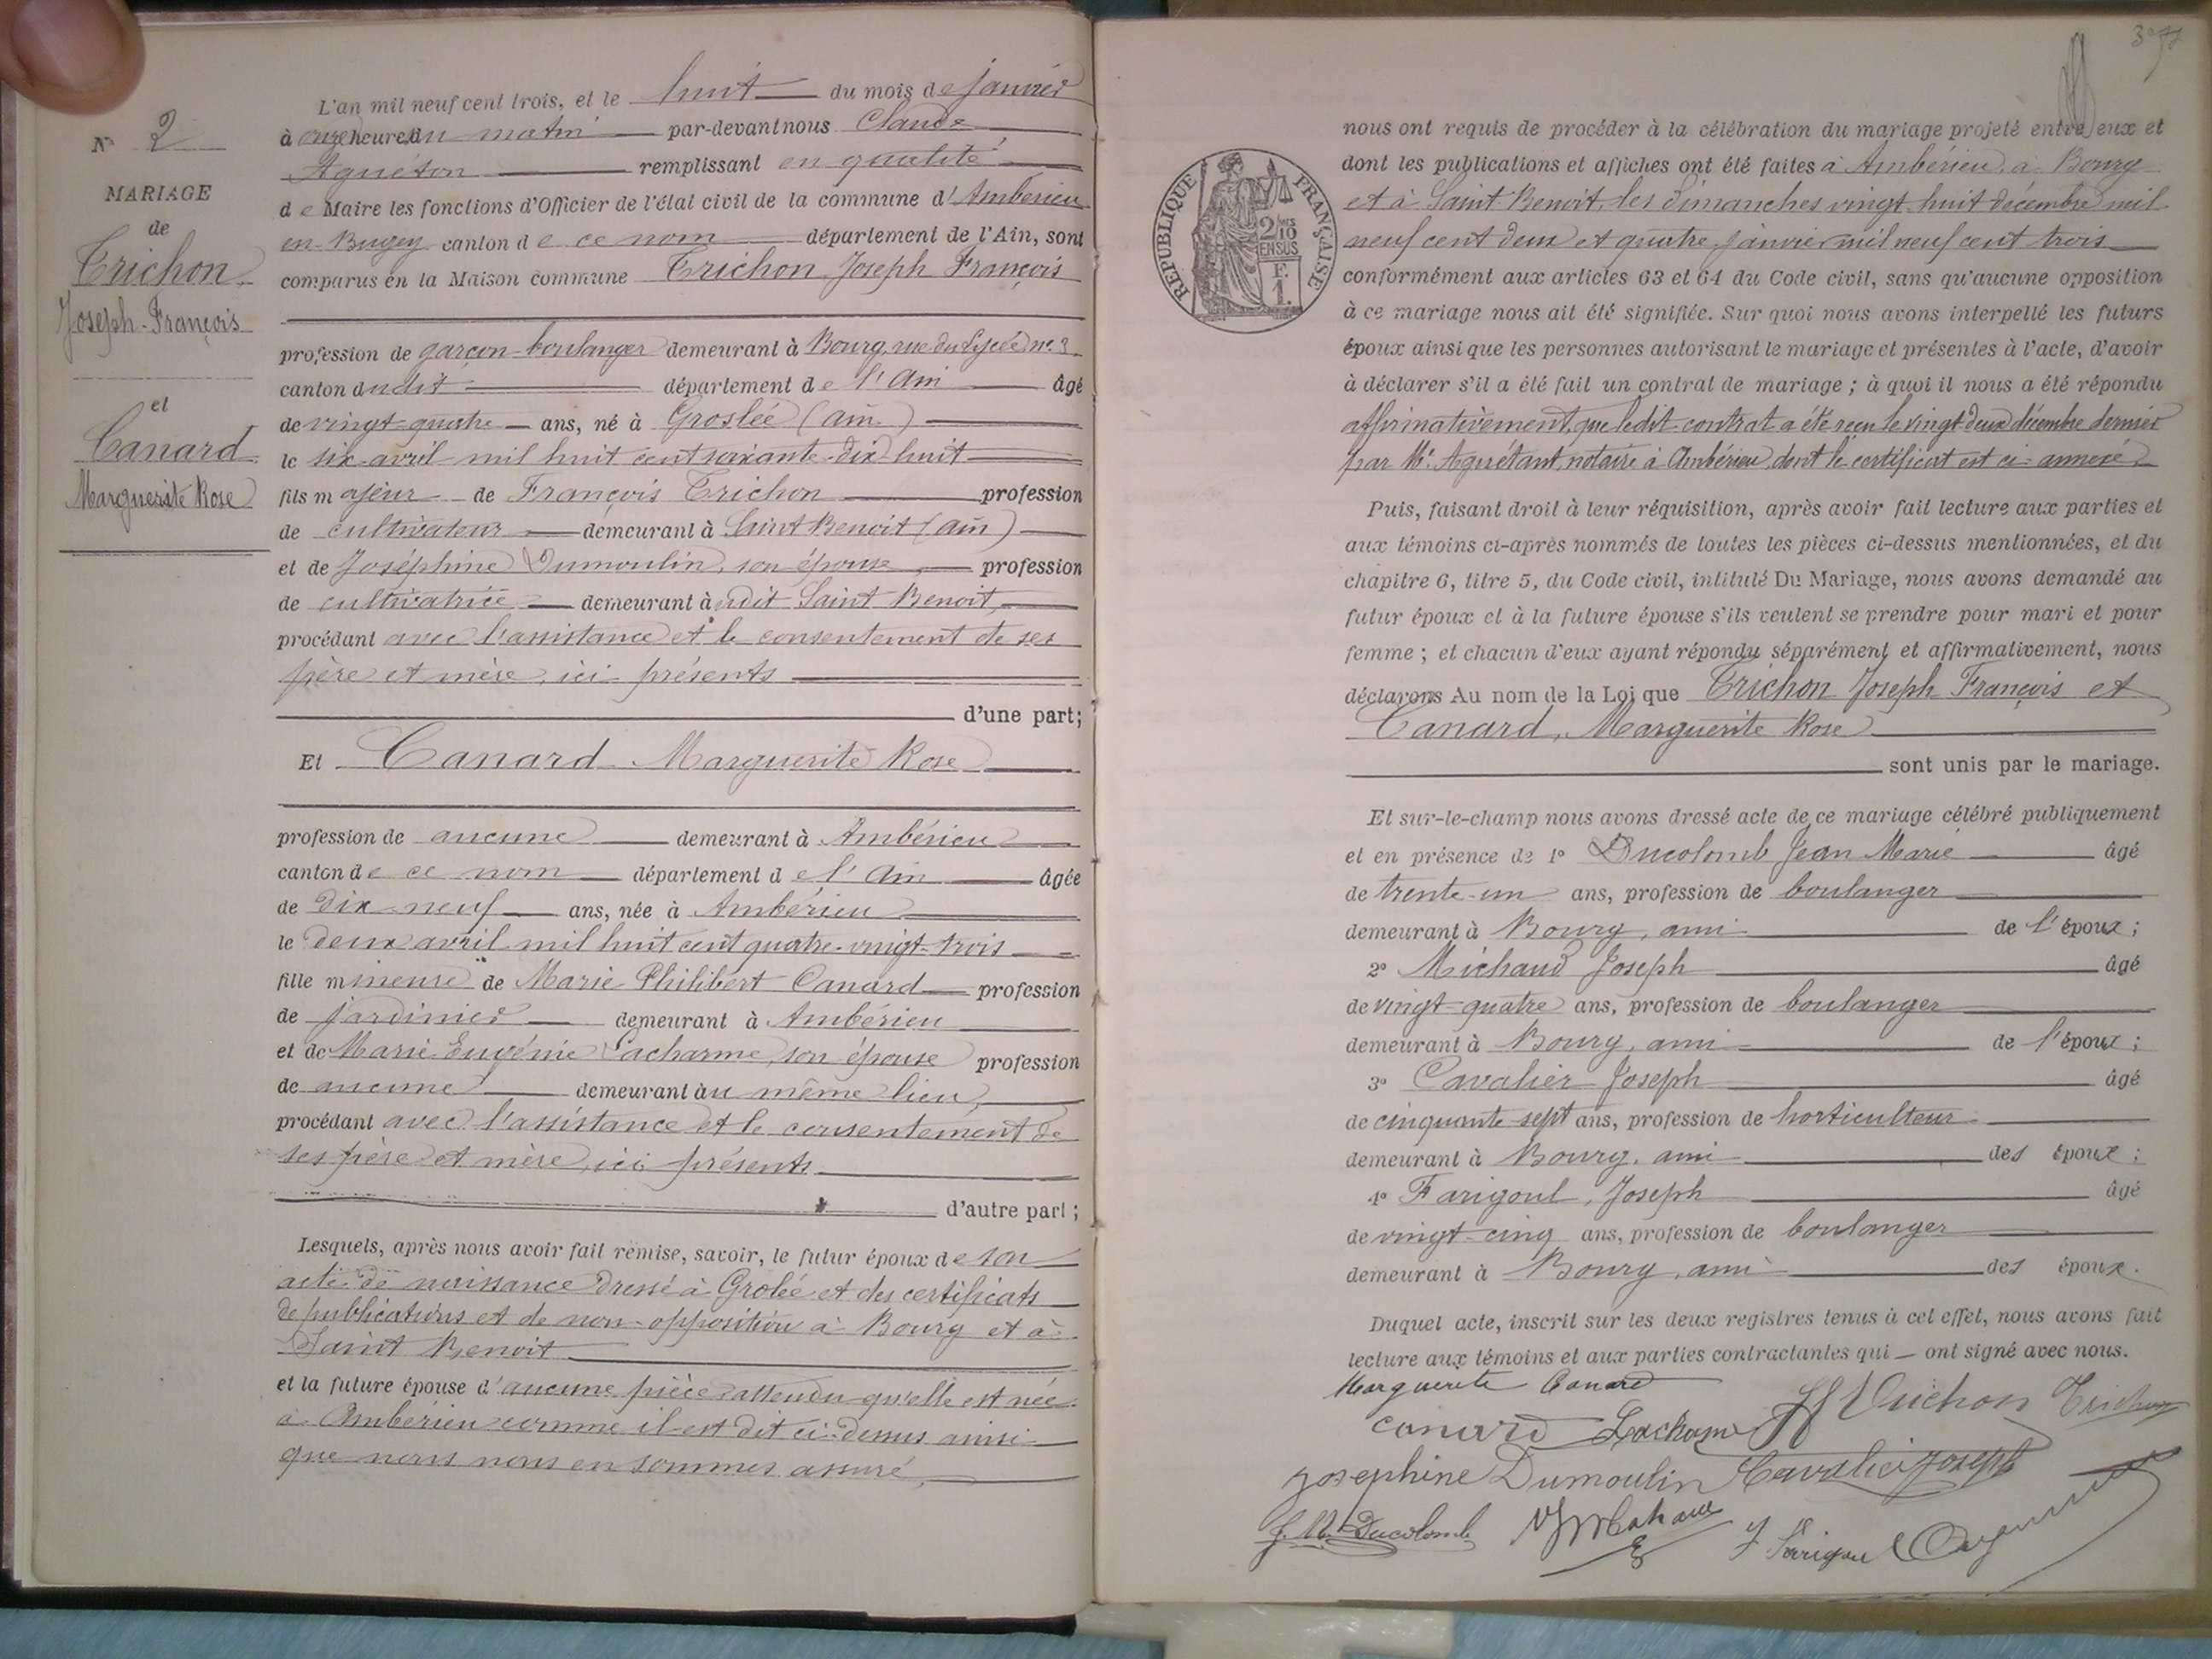 N° 2
MARIAGE
de
Trichon
Joseph-François
et
Canard
Marguerite Rose
L'an mil neuf cent trois, et le huit du mois de janvier
à onze heures du matin par-devant nous Claude
Aguéton remplissant en qualité
de Maire les fonctions d'Officier de l'état civil de la commune d'Ambérieu
en-Bugey canton de ce nom département de l'Ain, sont
comparus en la Maison commune Trichon Joseph François
profession de garçon-boulanger demeurant à Bourg, rue du Lycée n° 3
canton dudit département de l'Ain âgé
de vingt-quatre ans, né à Groslée (Ain)
le six avril mil huit cent soixante-dix huit
fils majeur de François Trichon profession
de cultivateur demeurant à Saint Benoit (Ain)
et de Joséphine Dumoulin, son épouse profession
de cultivatrice demeurant à udit Saint Benoit,
procédant avec l'assistance et le consentement de ses
père et mère, ici présents
d'une part;
Et Canard Marguerite Rose
profession de aucune demeurant à Ambérieu
canton de ce nom département de l'Ain âgée
de dix-neuf ans, née à Ambérieu
le deux avril mil huit cent quatre-vingt-trois
fille mineure de Marie Philibert Canard profession
de jardinier demeurant à Ambérieu
et de Marie Eugénie Lacharme, son épouse profession
de aucune demeurant au même lieu,
procédant avec l'assistance et le consentement de
ses père et mère, ici présents
d'autre part;
Lesquels, après nous avoir fait remise, savoir, le futur époux de son
acte de naissance dressé à Grolée et des certificats
de publications et de non-opposition à Bourg et à
Saint Benoit
et la future épouse d'aucune pièce attendu qu'elle est née
à Ambérieu comme il est dit ci-dessus ainsi
que nous nous en sommes assuré,
nous ont requis de procéder à la célébration du mariage projeté entre eux et
dont les publications et affiches ont été faites à Ambérieu, à Bourg
et à Saint Benoit, les dimanches vingt-huit décembre mil
neuf cent deux et quatre janvier mil neuf cent trois
RÉPUBLIQUE FRANÇAISE
2/10
EN SUS
F.
1.
conformément aux articles 63 et 64 du Code civil, sans qu'aucune opposition
à ce mariage nous ait été signifiée. Sur quoi nous avons interpellé les futurs
époux ainsi que les personnes autorisant le mariage et présentes à l'acte, d'avoir
à déclarer s'il a été fait un contrat de mariage; à quoi il nous a été répondu
affirmativement, que ledit contrat a été reçu le vingt-deux décembre dernier
par Me Aguétant, notaire à Ambérieu, dont le certificat est ci-annexé.
Puis, faisant droit à leur réquisition, après avoir fait lecture aux parties et
aux témoins ci-après nommés de toutes les pièces ci-dessus mentionnées, et du
chapitre 6, titre 5, du Code civil, intitulé Du Mariage, nous avons demandé au
futur époux et à la future épouse s'ils veulent se prendre pour mari et pour
femme; et chacun d'eux ayant répondu séparément et affirmativement, nous
déclarons Au nom de la Loi que Trichon Joseph François et
Canard, Marguerite Rose
sont unis par le mariage.
Et sur-le-champ nous avons dressé acte de ce mariage célébré publiquement
et en présence de 1° Ducolomb Jean Marie âgé
de trente-un ans, profession de boulanger
demeurant à Bourg, ami de l'époux;
2° Michaud Joseph âgé
de vingt-quatre ans, profession de boulanger
demeurant à Bourg, ami de l'époux;
3° Cavalier Joseph âgé
de cinquante-sept ans, profession de horticulteur
demeurant à Bourg, ami des époux;
4° Farigoul, Joseph âgé
de vingt-cinq ans, profession de boulanger
demeurant à Bourg, ami des époux.
Duquel acte, inscrit sur les deux registres tenus à cet effet, nous avons fait
lecture aux témoins et aux parties contractantes qui — ont signé avec nous.
Marguerite Canard
canard Lacharme Trichon Trichon
Josephine Dumoulin Cavalier Joseph
J. M. Ducolomb J Farigoul